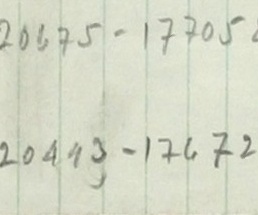 20675-17705
20443-17672